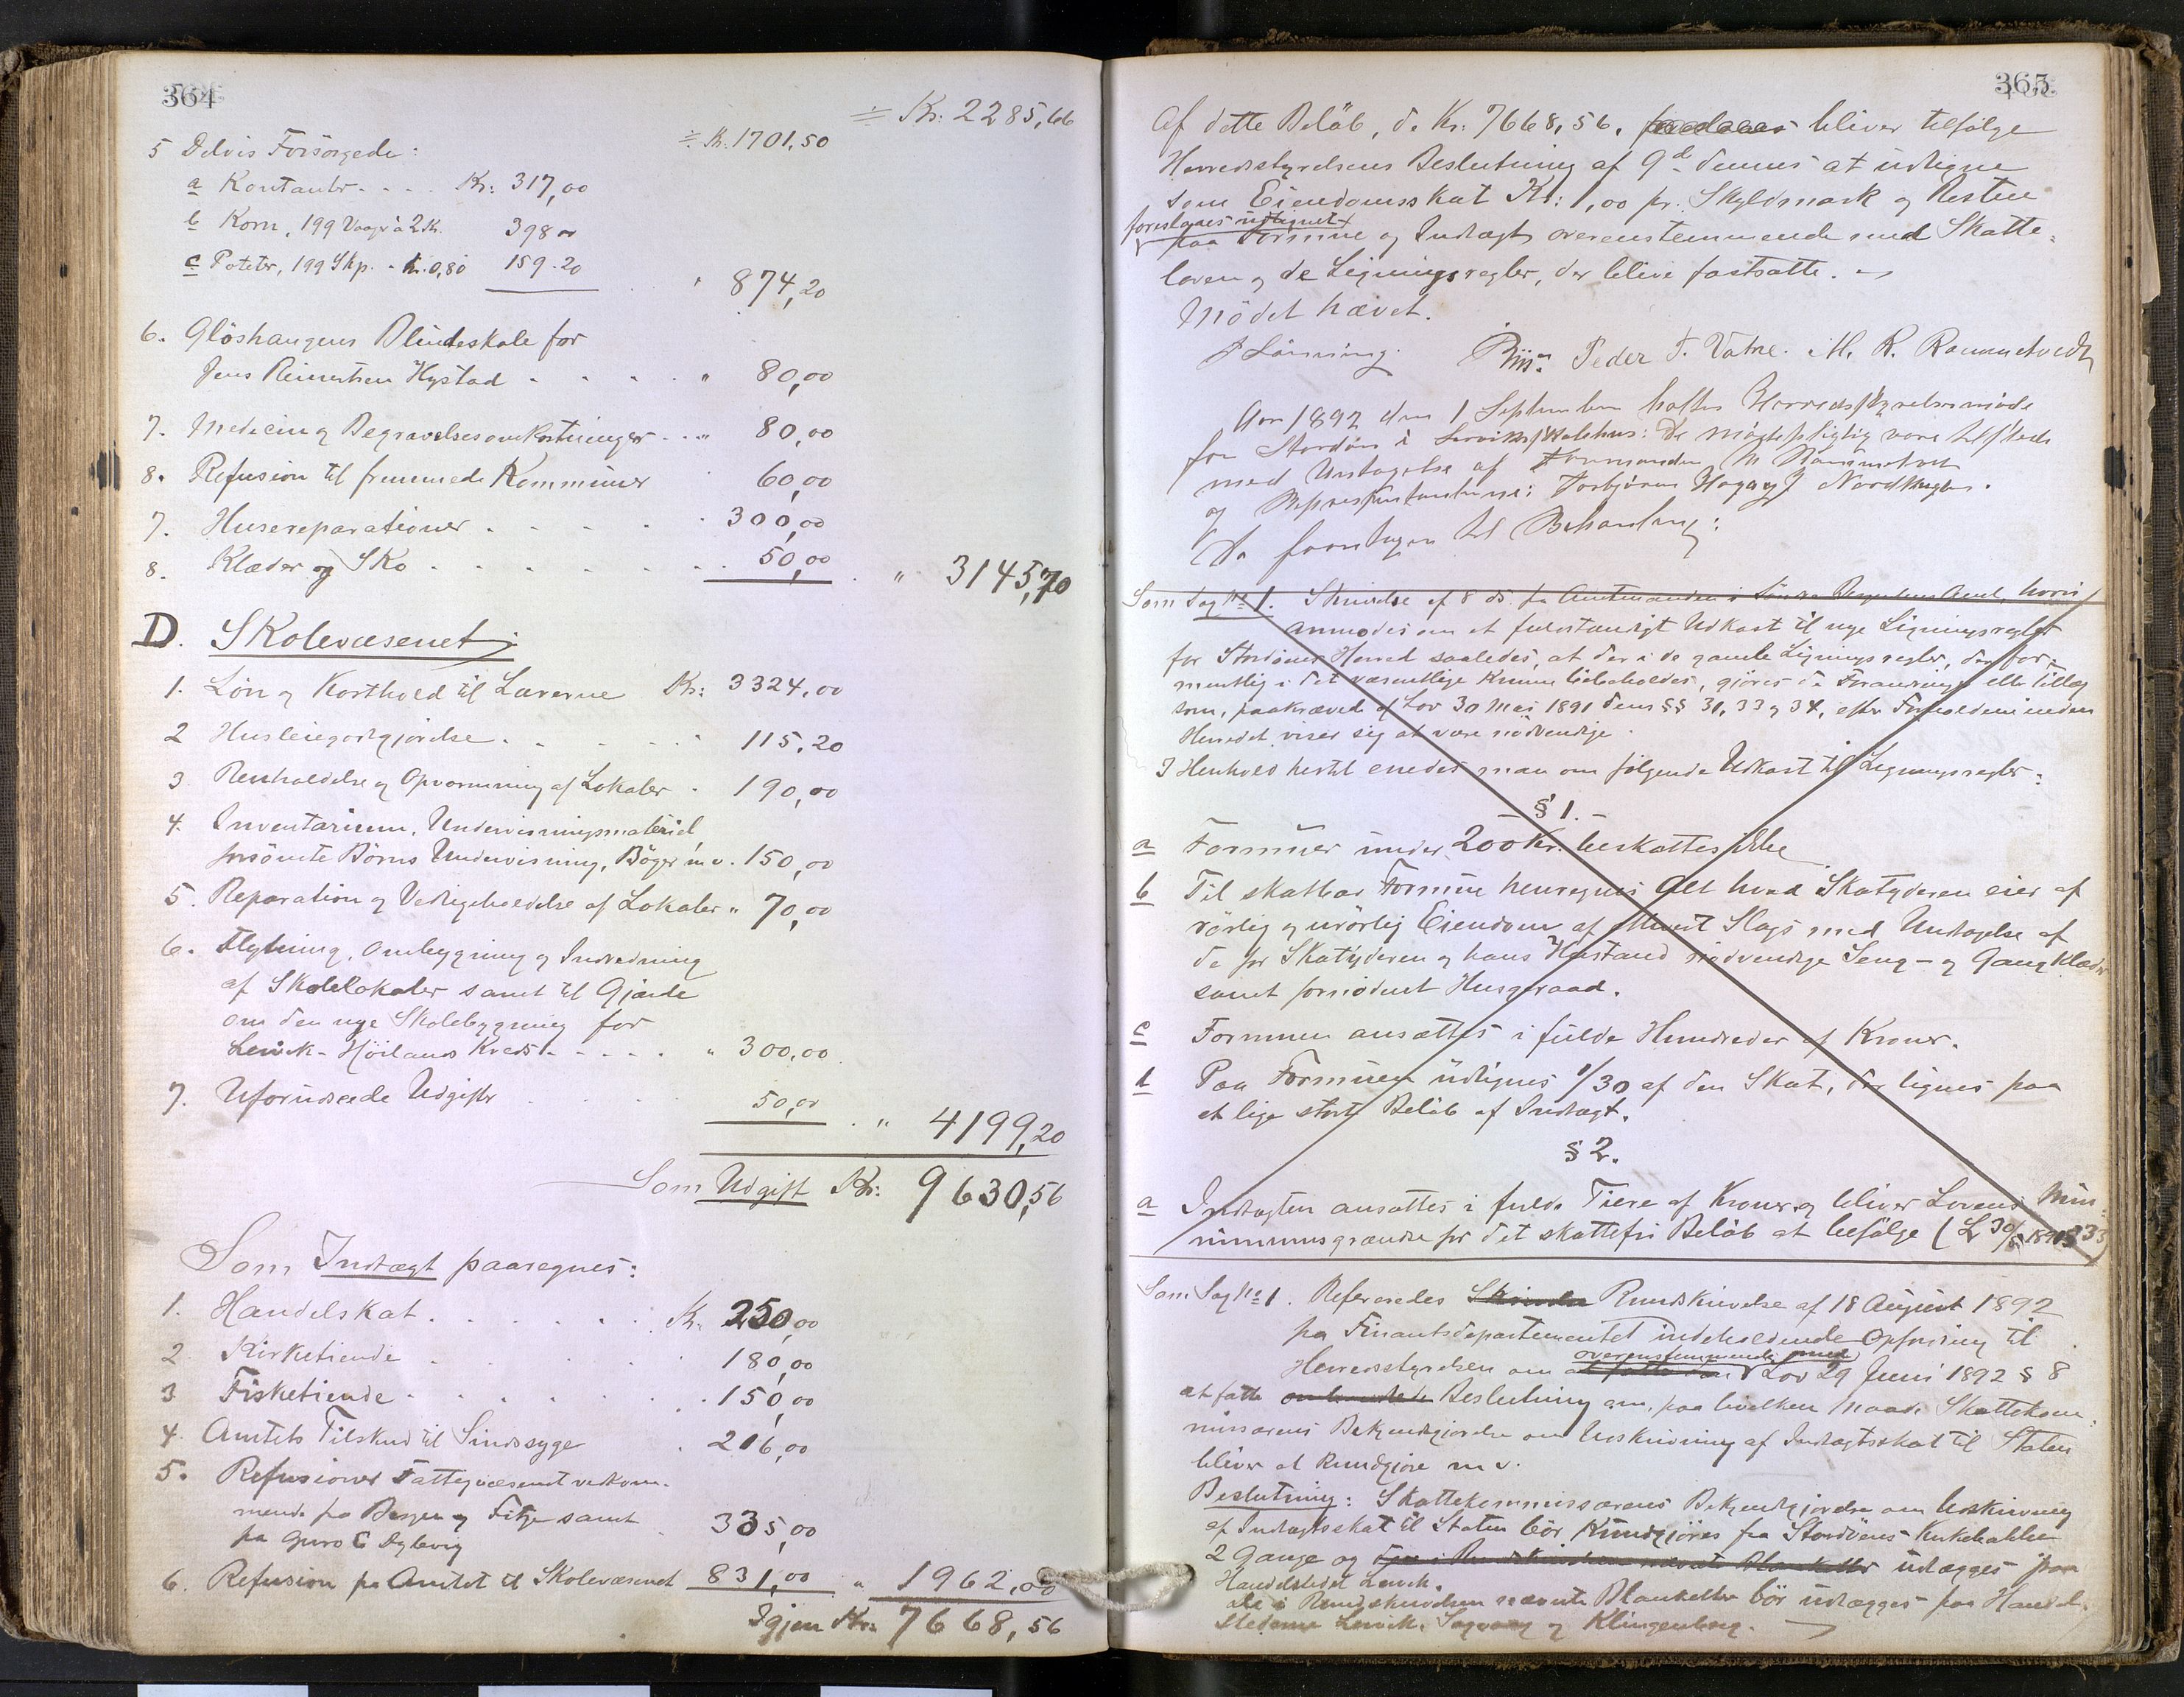 364
÷ Kr: 2285,66
÷ Kr. 1701,50
5 Delvis Forsörgede:
a Kontanter . . . . Kr: 317,00
b Korn, 199 Vaager à 2 Kr. 398 00
c Poteter, 199 Skp. - Kr. 0,80 159.20
" 874,20
6. Glöshaugens Blindeskole for
Jens Reinertsen Hystad - - - - " 80,00
7. Medecin og Begravelsesomkostninger . . . " 80,00
8. Refusion til fremmede Kommuner 60,00
7. Husereparationer . - - - - 300,00
8. Klæder og Sko . - - - - - - . 50,00 . " 3145,70
D. Skolevæsenet;
1. Lön og Kosthold til Lærerne Kr: 3324,00
2 Husleiegodtgjörelse . - - - - 115,20
3 Renholdelse og Opvarmning af Lokaler . 190,00
4. Inventarium, Undervisningsmateriel,
forsömte Börns Undervisning, Böger m.v. 150,00
5. Reparation og Vedligeholdelse af Lokaler " 70,00
6. Flytning, Ombygning og Indredning
af Skolelokaler samt til Gjærde
om den nye Skolebygning for
Lervik - Höilands Kreds . - - - . " 300,00
7. Uforudseede Udgifter . . . . 50,00 . " 4199,20
Som Udgift Kr: 9630,56
Som Indtægt paaregnes:
1. Handelskat . . . . . . . Kr. 250,00
2. Kirketiende . . . . . 180,00
3 Fisketiende . . . . . . . 150,00
4. Amtets Tilskud til Sindssyge . 216,00
5. Refusioner Fattigvæsenet vedkom-
mende fra Bergen og Fitje samt
fra Guro C Dylevig 335,00
6. Refusion fra Amtet til Skolevæsenet 831,00 " 1962,00
Igjen Kr. 7668,56
365.
Af dette Belöb, de Kr: 7668,56, bliver tilfölge
Herredsstyrelsens Beslutning af 9d dennes at udligne
som Eiendomsskat Kr: 1,00 pr. Skyldmark og Resten
foreslaaes udlignet
paa Formue og Indtægt overenstemmende med Skatte-
loven og de Ligningsregler, der blive fastsatte.
Mödet hævet.
Peder T. Vatne. M. R. Rommetvedt
Aar 1892 den 1 September holtes Herredsstyrelsesmöde
for Stordöen i Lerviks Skolehus: De mödepligtig vare tilstede
med Undtagelse af Formanden M Rommetvet
og Repræsentanterne: Torbjörn Hagag J Nordhuglen.
Da foretages til Behandling:
Som Sag No 1. Skrivelse af 8 ds. fra Amtmanden i Söndre Bergenhus Amt, hvori
anmodes om et fuldstændigt Udkast til nye Ligningsregler
for Stordöens Herred saaledes, at der i de gamle Ligningsregler, der for-
mentlig i det væsentlige kunne bibeholdes, gjöres de Forandringer eller Tillæg
som, paakræved af Lov 30 Mai 1891 dens §§ 31, 33 og 34, efter Forholdene inden
Herredet viser sig at være nödvendige.
I Henhold hertil enedes man om fölgende Udkast til Ligningsregler:
- § 1. -
a Formuer under 200 Kr. beskattes ikke.
b Til skatbar Formue henregnes Alt hvad Skatyderen eier af
rörlig og urörlig Eiendom af ethvert Slags med Undtagelse af
de for Skatyderen og hans Husstand nödvendige Seng- og Gangklæder
samt fornödent Husgeraad.
c Formuen ansættes i fulde Hundreder af Kroner.
d Paa Formuen udlignes 1/30 af den Skat, der lignes paa
et lige stort Belöb af Indtægt.
§ 2.
a Indtægten ansættes i fulde Tiere af Kroner og bliver Lovens Min-
nimumsgrændse for det skattefri Belöb at befölge (L 30/5 1891 § 33)
Som Sag No 1. Refereredes Skrivelse Rundskrivelse af 18 August 1892
fra Finantsdepartementet indeholdende Opfordring til
overenstemmende med
Herredsstyrelsen om at fatte Lov 29 Juni 1892 § 8
at fatte Beslutning om, paa hvilken Maade Skattekom-
missærens Bekjendtgjörelse om Udskrivning af Indtægtsskat til Staten
bliver at kundgjöre m.v.
Beslutning: Skattekommissærens Bekjendtgjörelse om Udskrivning
af Indtægtsskat til Staten bör kundgjöres fra Stordöens Kirkebakke
2 Gange og den i Rundskrivelsen nævnte Blanketter udlægges paa
Handelsstedet Lervik.
De i Rundskrivelsen nævnte Blanketter bör udlægges paa Handel-
stederne Lervik, Sagvaag og Klingenberg.